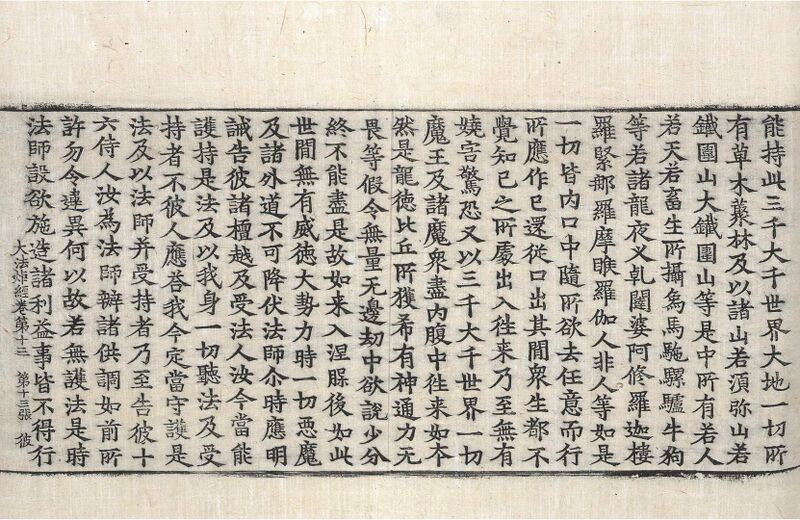 能持此三千大千世界大地一切所
有草木叢林及以諸山若湏弥山若
鐵圍山大鐵圍山等是中所有若人
若天若畜生所攝為馬駞騾驢牛狗
等若諸龍夜义乹闥婆阿修羅迦樓
羅緊那羅摩睺羅伽人非人等如是
一切皆内口中隨所欲去任意而行
所應作已還從口出其間衆生都不
覺知已之所處出入徃来乃至無有
嬈害驚恐又以三千大千世界一切
魔王及諸魔衆盡内腹中徃来如夲
然是龍德比丘所獲希有神通力无
畏等假令無量无邊劫中欲說少分
終不能盡是故如来入涅槃後如此
世間無有威德大勢力時一切悪魔
及諸外道不可降伏法師尒時應明
誡告彼諸檀越及受法人汝今當能
護持是法及以我身一切聽法及受
持者不彼人應荅我今定當守護是
法及以法師并受持者乃至告彼十
六侍人汝為法師辦諸供調如前所
許勿令違異何以故若無護法是時
法師設欲施造諸利益事皆不得行
大法炬經卷第十三 第十三張 彼